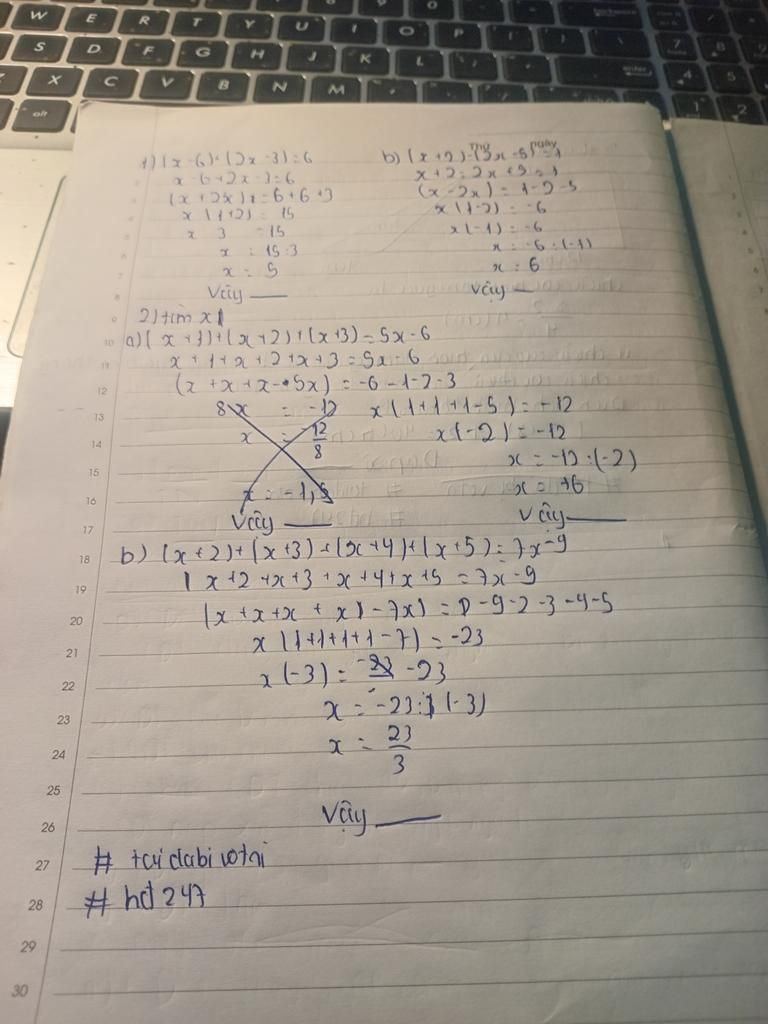 1) (x-6)+(2x-3)=6
x-6+2x-3=6
(x+2x)=6+6+3
x(1+2)=15
x 3 =15
x = 15:3
x = 5
Vậy —
Thứ ngày
b) (x+2)-(2x-5)=1
x+2-2x+5=1
(x-2x)=1-2-5
x(1-2)=-6
x(-1)=-6
x=-6:(-1)
x=6
Vậy —
2) tìm x
a) (x+1)+(x+2)+(x+3)=5x-6
x+1+x+2+x+3=5x-6
(x+x+x-5x)=-6-1-2-3
8x = -12
x = -12/8
x = -1,5
Vậy —
x(1+1+1-5)=-12
x(-2)=-12
x=-12:(-2)
x=+6
Vậy —
b) (x+2)+(x+3)+(x+4)+(x+5)=7x-9
x+2+x+3+x+4+x+5=7x-9
(x+x+x+x)-7x)=0-9-2-3-4-5
x(1+1+1+1-7)=-23
x(-3)=-23 -23
x=-23:(-3)
x=23/3
Vậy —
#
# hd247
W E R T Y U I O P
S D F G H J K L
X C V B N M
alt
8
9
10
11
12
13
14
15
16
17
18
19
20
21
22
23
24
25
26
27
28
29
30